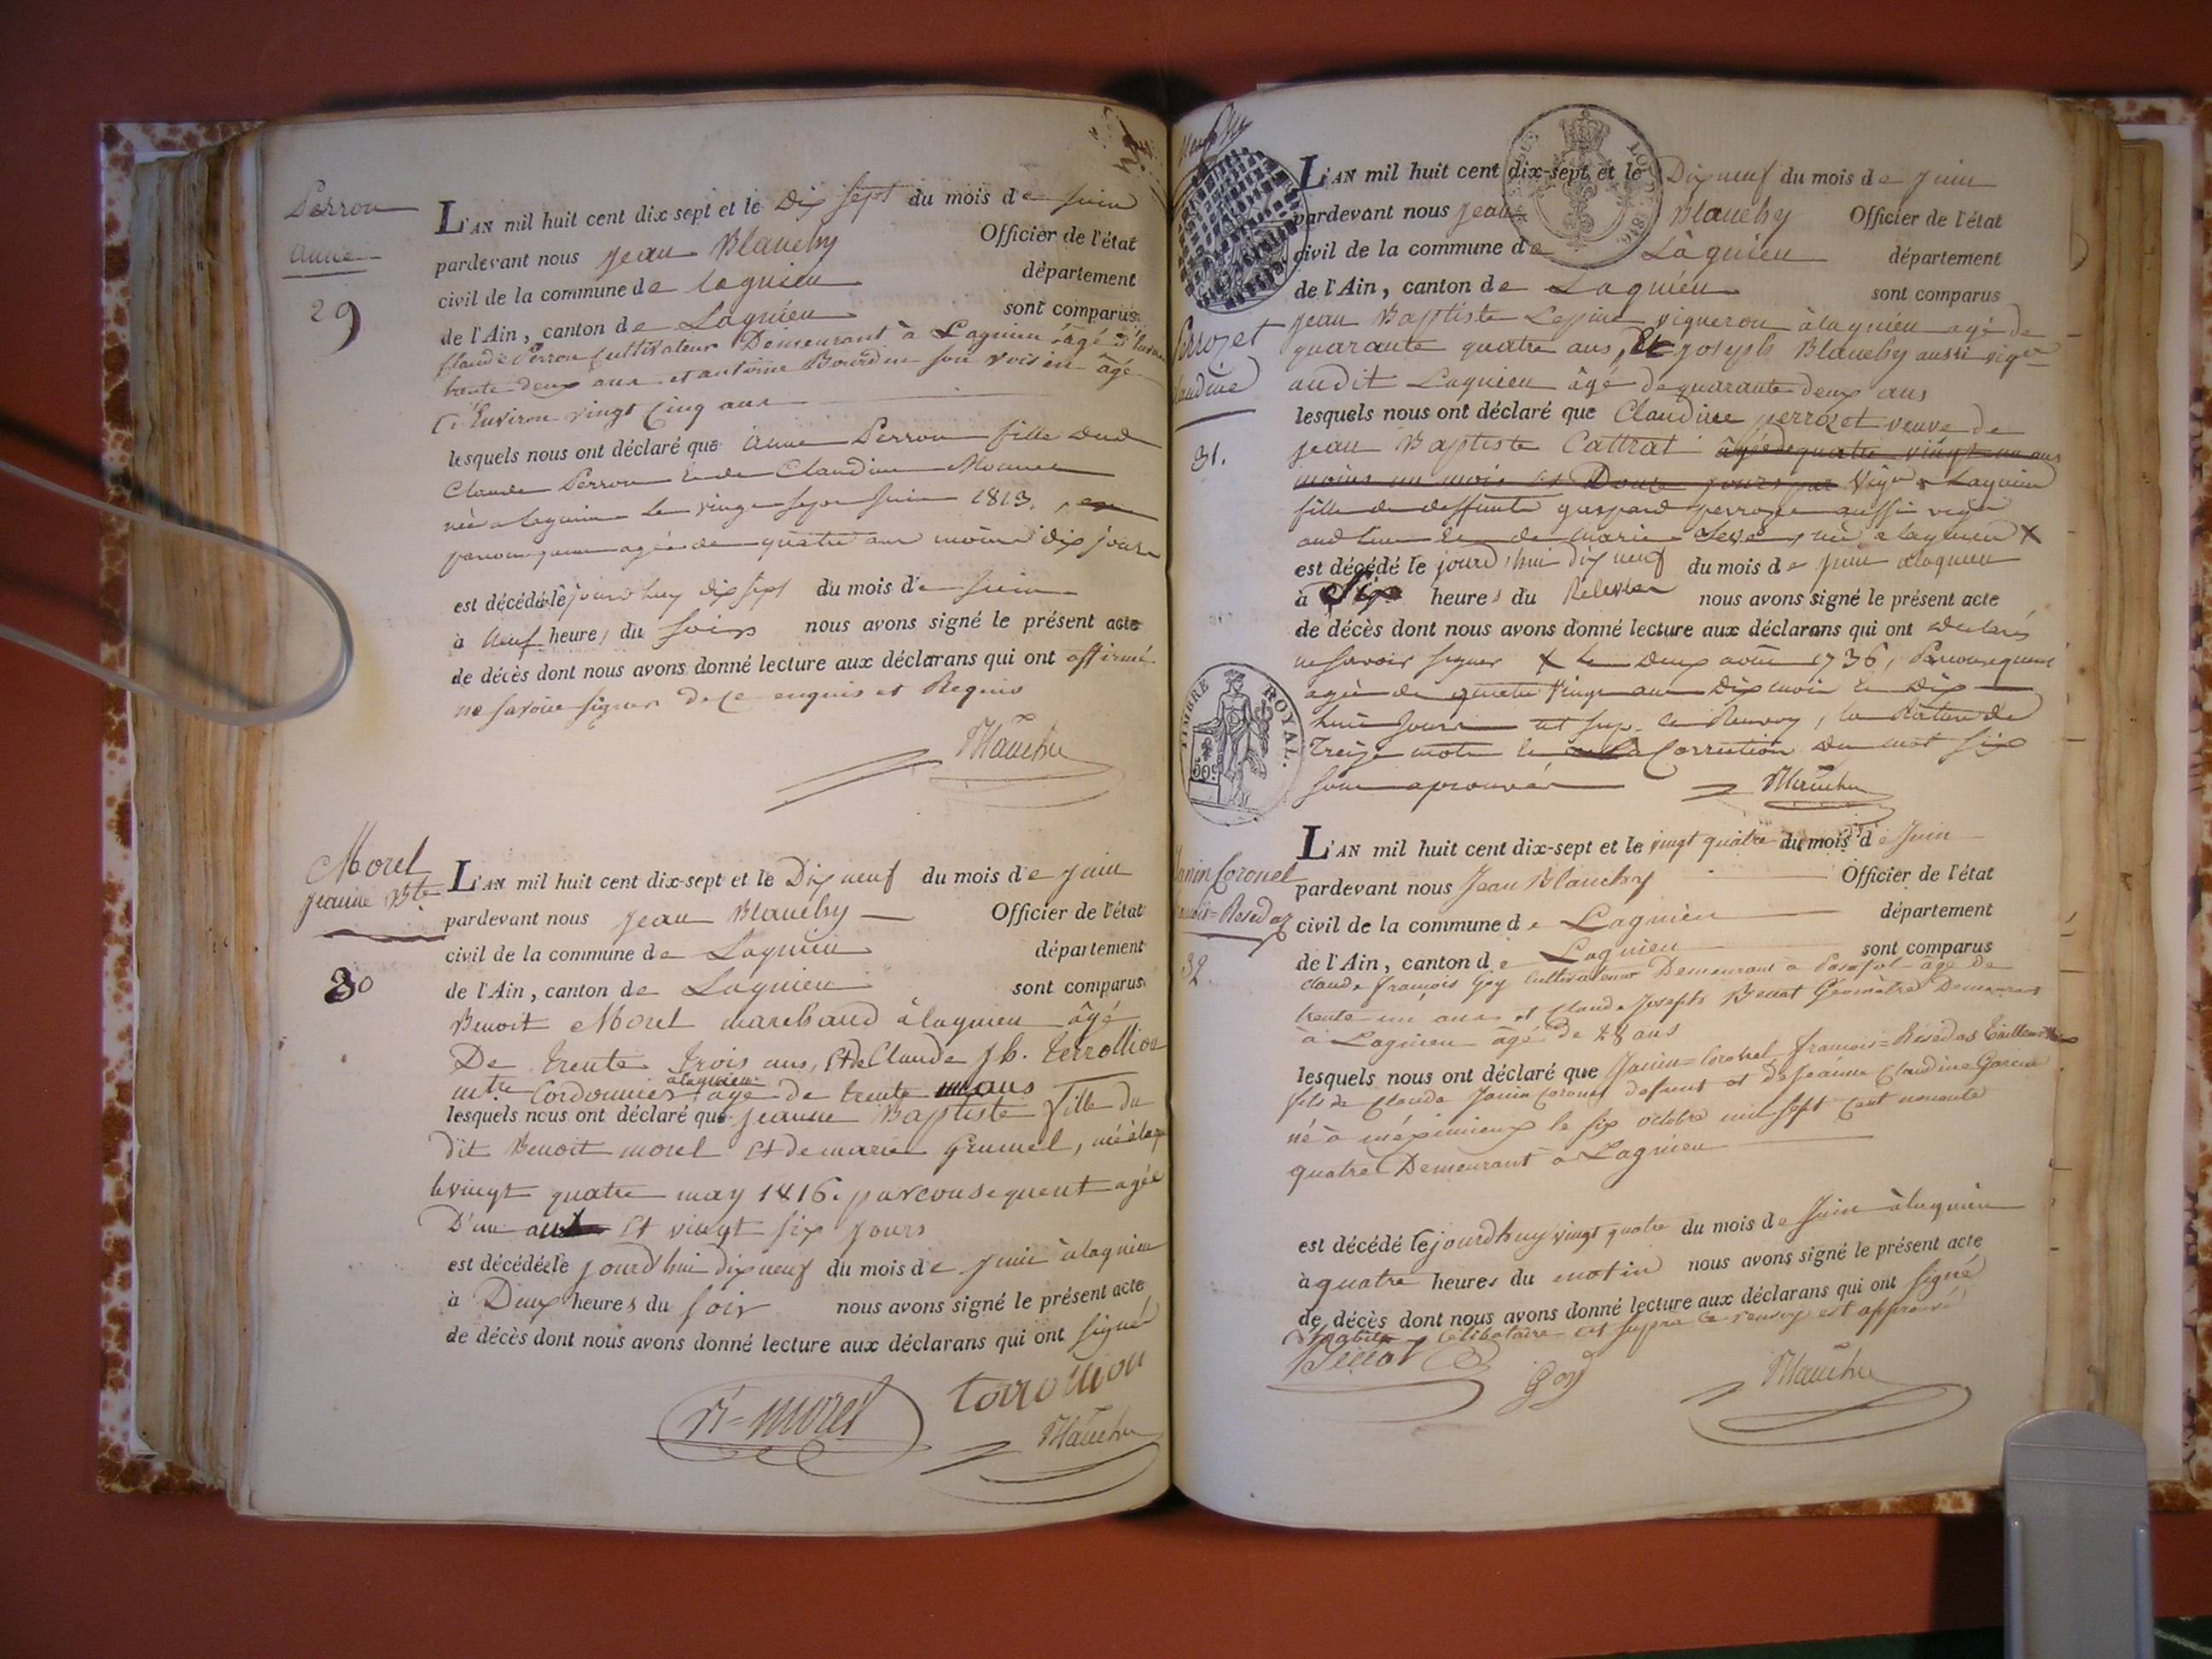 Perron
Anne
29
L'AN mil huit cent dix sept et le Dix sept du mois de Juin
pardevant nous Jean Blanchy Officier de l'état
civil de la commune de Lagnieu département
de l'Ain, canton de Lagnieu sont comparus
Claude Perron Cultivateur Demeurant à Lagnieu âgé d'Environ
trente deux ans et antoine Bourdin son voisin âgé
d'Environ vingt Cinq ans
lesquels nous ont déclaré que anne Perron fille dud
Claude Perron & de Claudine
née a lagnieu le vingt sept Juin 1813,
par consequent agée de quatre ans moins dix jours
est décédée le jourd huy dix sept du mois de Juin
à neuf heures du soir nous avons signé le présent acte
de décès dont nous avons donné lecture aux déclarans qui ont affirmé
ne savoir signer de ce enquis et Requis
Blanchy
Morel
Jeanne Bte
30
L'AN mil huit cent dix-sept et le Dix neuf du mois de Juin
pardevant nous Jean Blanchy Officier de l'état
civil de la commune de Lagnieu département
de l'Ain, canton de Lagnieu sont comparus
Benoit Morel marchand à lagnieu âgé
De trente trois ans, Et de Claude J b. terrollion
mtre Cordonnier alagnieu agé de trente ans
lesquels nous ont déclaré que Jeanne Baptiste fille du
dit Benoit morel Et de marie Grumel, née à lag
le vingt quatre may 1816. par consequent agée
D'un an Et vingt six jours
est décédée le jourd'hui dix neuf du mois de Juin à lagnieu
à Deux heures du soir nous avons signé le présent acte
de décès dont nous avons donné lecture aux déclarans qui ont signé
Bt = morel terrollion
Blanchy
L'AN mil huit cent dix-sept et le Dix neuf du mois de Juin
pardevant nous Jean Blanchy Officier de l'état
civil de la commune de Lagnieu département
de l'Ain, canton de Lagnieu sont comparus
Perrozet
Claudine
31.
Jean Baptiste Lepine vigneron à lagnieu agé de
quarante quatre ans, Et Joseph Blanchy aussi vign
audit Lagnieu âgé de quarante deux ans
lesquels nous ont déclaré que Claudine perrozet veuve de
Jean Baptiste Cattrat âgée de quatre vingt un ans
moins un mois et Douze jours Vign a Lagnieu
fille de deffunts gaspard perrozet aussi vign
aud lieu & de marie, née a lagnieu X
est décédé le jourd'hui dix neuf du mois de Juin alagnieu
à Six heures du nous avons signé le présent acte
de décès dont nous avons donné lecture aux déclarans qui ont declarés
ne savoir signer X le deux août 1736, Par consequent
agée de quatre vingt ans Dix mois & Dix
huit jours ut sup. le Renvoy, la Rature de
Treize mots & la Correction du mot six
sont aprouvés
Blanchy
TIMBRE ROYAL.
50c
Janin Coronel
François = Rosedas
32
L'AN mil huit cent dix-sept et le vingt quatre du mois de Juin
pardevant nous Jean Blanchy Officier de l'état
civil de la commune de Lagnieu département
de l'Ain, canton de Lagnieu sont comparus
Claude françois Goy Cultivateur Demeurant a Posafol âgé de
trente un ans et Claude Joseph Géomètre Demeurant
à Lagnieu agé de 28 ans
lesquels nous ont déclaré que Janin = Coronel françois = Rosedas
fils de Claude Janin Coronel defunt et de Jeanne Claudine
né à méximieux le six octobre mil sept Cent nonante
quatre Demeurant à Lagnieu
est décédé le jourdhuy vingt quatre du mois de Juin à lagnieu
à quatre heures du matin nous avons signé le présent acte
de décès dont nous avons donné lecture aux déclarans qui ont signé
Célibataire ut supra le renvoy est approuvé
Goy
Blanchy